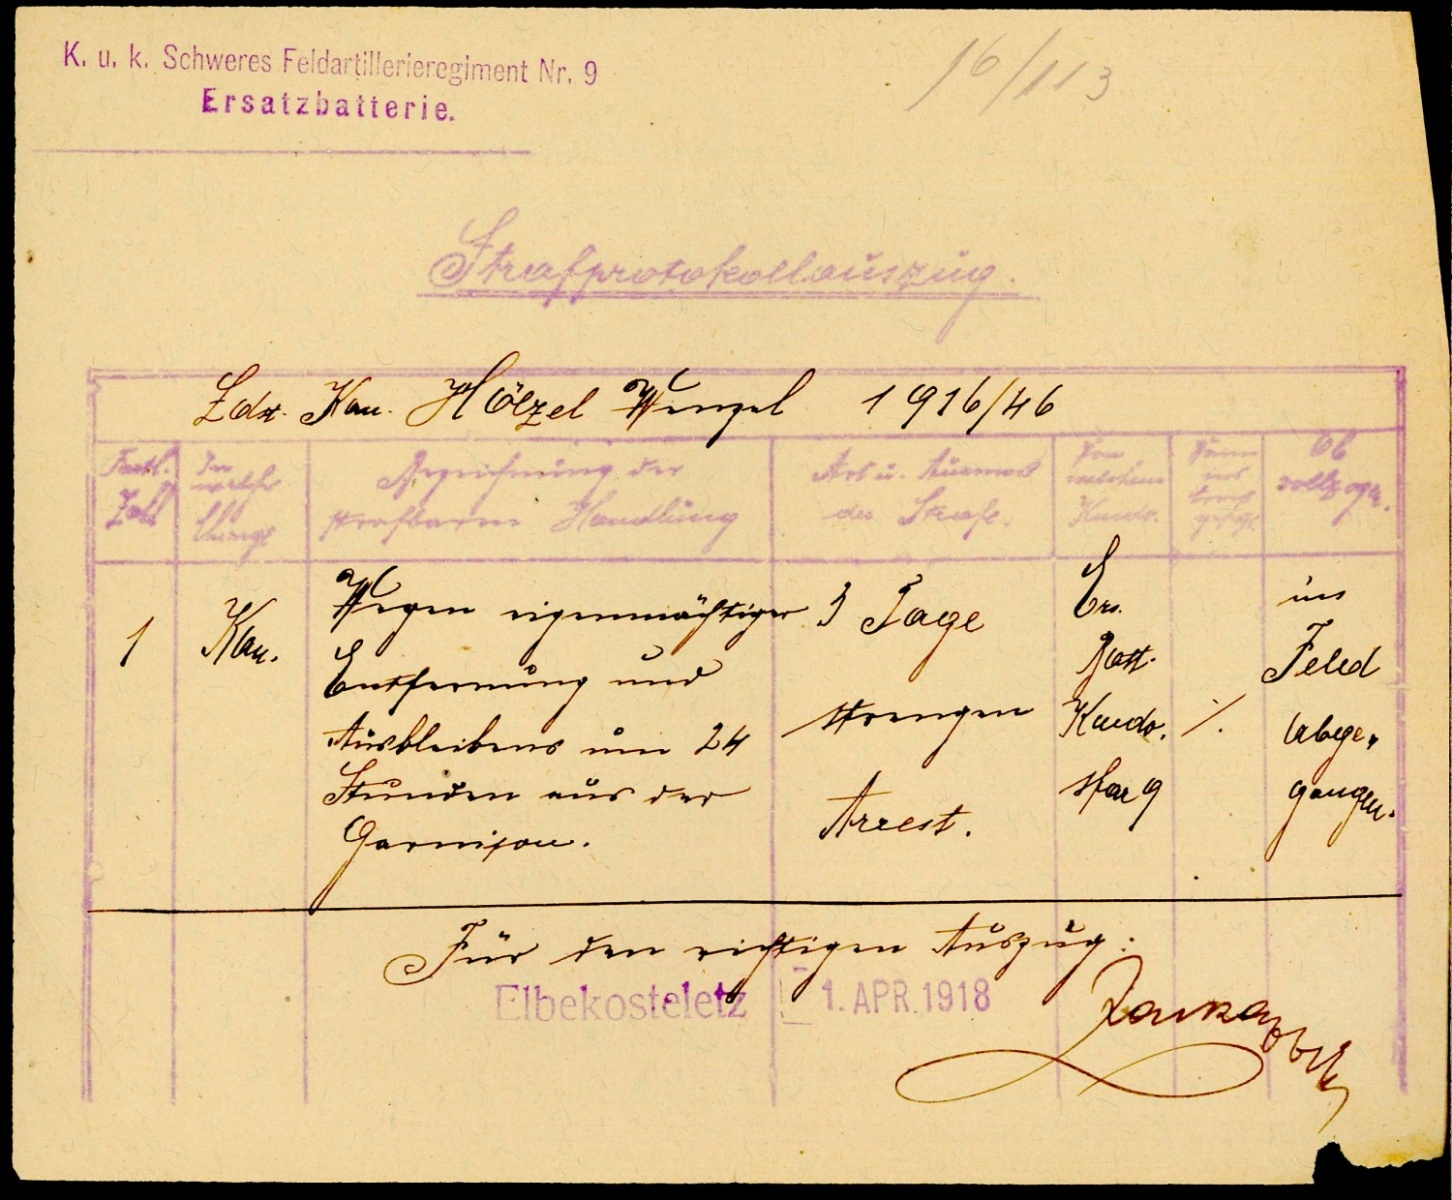 K. u. k. Schweres Feldartillerieregiment Nr. 9
Ersatzbatterie.
16/113
Strafprotokollauszug.
Ldst. Kan. Hölzel Wenzel 1916/46
Fortl. Zahl
In welcher Charge
Bezeichnung der
strafbaren Handlung
Art u. Ausmass
der Strafe.
Von welchem Kmdo.
Wann
Ob vollzogen.
1
Kan.
Wegen eigenmächtiger
Entfernung und
Ausbleibens um 24
Stunden aus der
Garnison.
3 Tage
strengen
Arrest.
Ers.
Batt.
Kmdo.
sfar 9
./.
ins
Feld
abge-
gangen.
Für den richtigen Auszug:
Elbekosteletz
1. APR. 1918